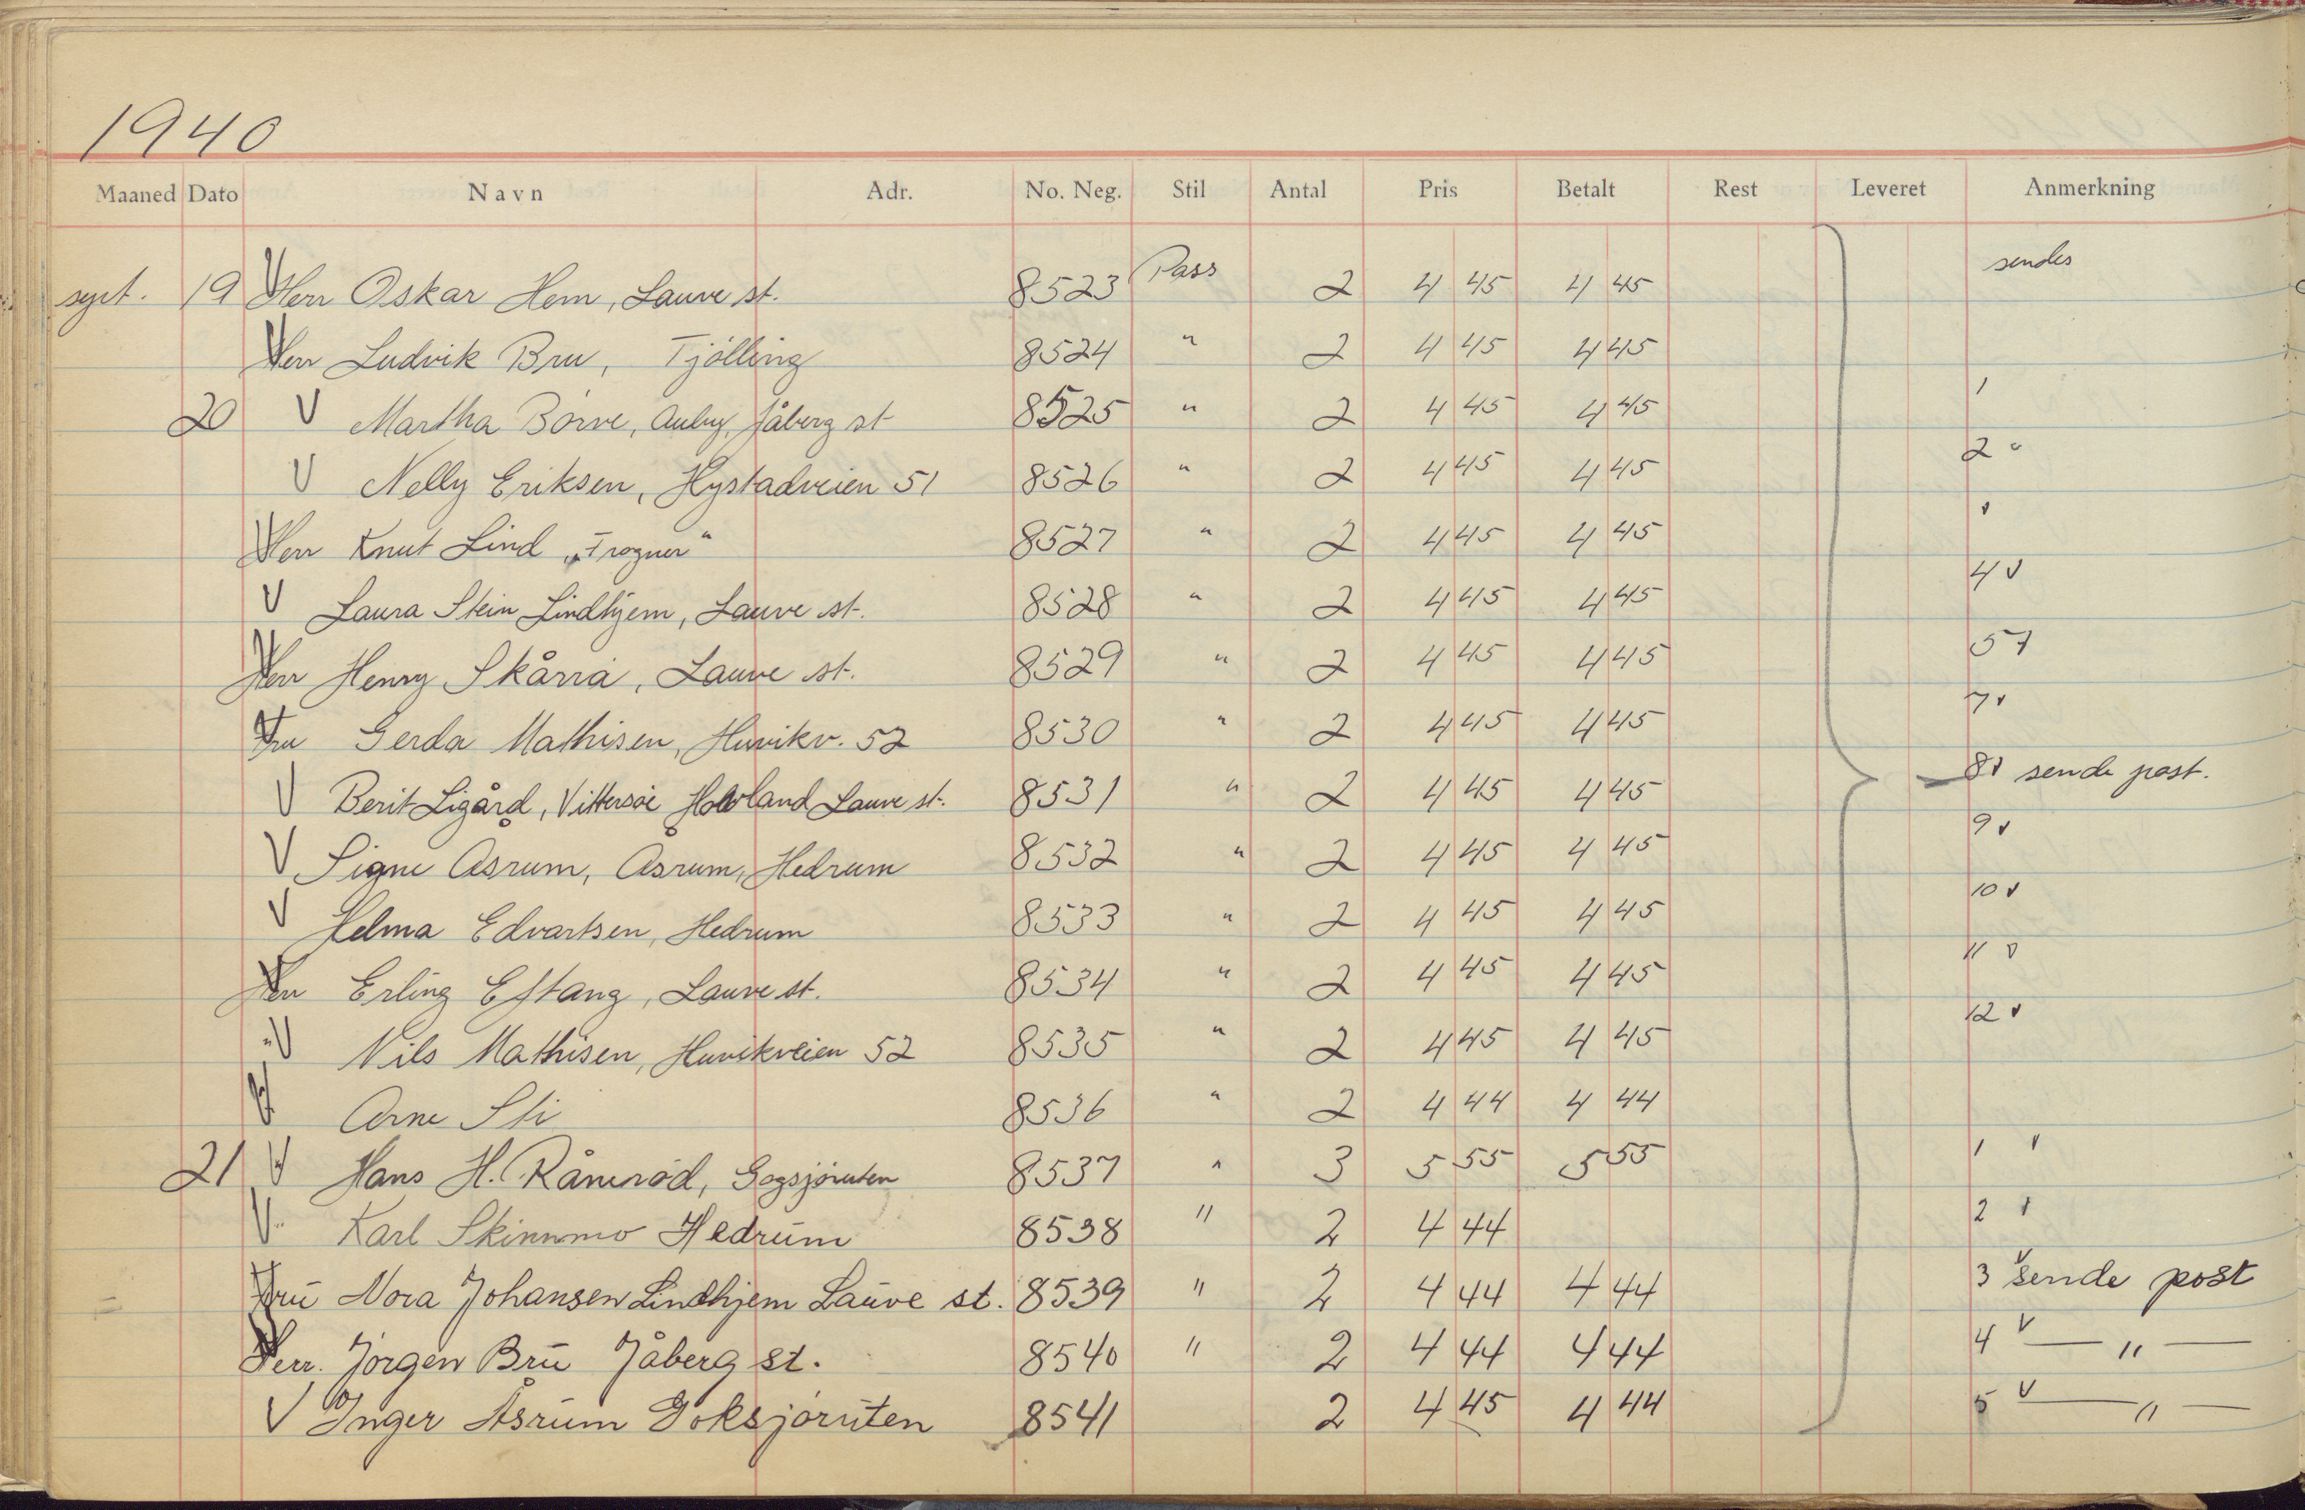 1940
Maaned Dato Navn Adr. No. Neg. Stil Antal Pris Betalt Rest Leveret Anmerkning
sept. 19 Herr Oskar Hem, Lauve st. 8523 Pass 2 4 45 4 45 sendes
Herr Ludvik Bru, Tjølling 8524 " 2 4 45 4 45
20 V Martha Börve, Auby, Jåberg st 8525 " 2 4 45 4 45 1
V Nelly Eriksen, Hystadveien 51 8526 " 2 4 45 4 45 2 "
Herr Knut Lind „Trogner" 8527 " 2 4 45 4 45 v
V Laura Stein Lindhjem, Lauve st. 8528 " 2 4 45 4 45 4 v
Herr Henry Skårra, Lauve st. 8529 " 2 4 45 4 45 5 v
Fru Gerda Mathisen, Huvikv. 52 8530 " 2 4 45 4 45 7 v
V Berit Ligård, Vittersøe Hovland Lauve st. 8531 " 2 4 45 4 45 8 v sende post.
V Signe Åsrum, Åsrum, Hedrum 8532 " 2 4 45 4 45 9 v
V Helma Edvartsen, Hedrum 8533 " 2 4 45 4 45 10 v
Herr Erling Eftang, Lauve st. 8534 " 2 4 45 4 45 11 v
" V Nils Mathisen, Huvikveien 52 8535 " 2 4 45 4 45 12 v
Arne Sti 8536 " 2 4 44 4 44
21 V Hans H. Råmerød, Gogsjøruten 8537 " 3 5 55 5 55 1 v
V " Karl Skinnmo Hedrum 8538 " 2 4 44 2 v
Fru Nora Johansen Lindhjem Lauve st. 8539 " 2 4 44 4 44 3 v sende post
Herr. Jørgen Bru Jåberg st. 8540 " 2 4 44 4 44 4 v — " —
V Inger Åsrum Goksjøruten 8541 2 4 45 4 44 5 v — " —